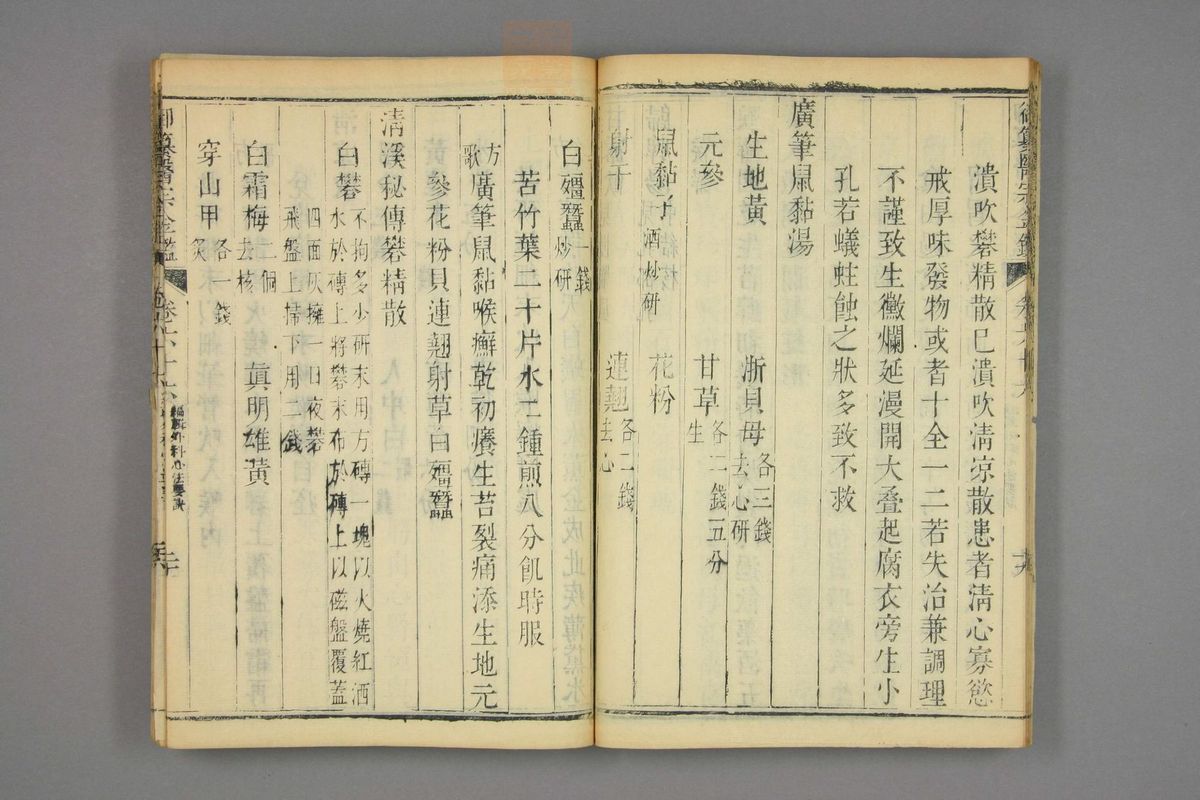 潰吹礬精散已潰吹清涼散患者清心寡慾
戒厚味發物或者十全一二若失治兼調理
不謹致生黴爛延漫開大叠起腐衣旁生小
孔若蟻蛀蝕之狀多致不救
廣筆鼠黏湯
生地黃 浙貝母去心研各三錢
元參 甘草生各二錢五分
鼠黏子酒炒研 花粉
射干 連翹去心各二錢
白殭蠶炒研一錢
苦竹葉二十片水二鍾煎八分飢時服
方歌 廣筆鼠黏喉癬乾初癢生苔裂痛添生地元
參花粉貝連翹射草白殭蠶
清溪秘傳礬精散
白礬不拘多少研末用方磚一塊以火燒紅洒
水於磚上將礬末布於磚上以磁盤覆蓋
四面灰擁一日夜礬
飛盤上掃下用二錢
白霜梅去核二個 眞明雄黃
穿山甲炙各一錢
御纂醫宗金鑑 卷六十六 編輯外科心法要訣